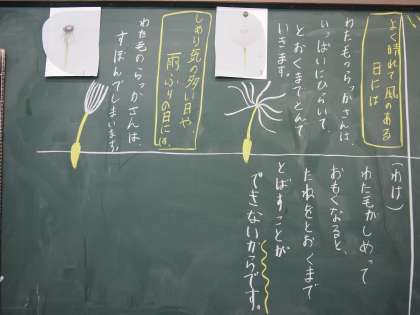 よく晴れて風のある
日には
わた毛のらっかさんは、
いっぱいにひらいて、
とおくまでとんで
いきます。
しめり気の多い日や、
雨ふりの日には、
わた毛のらっかさんは、
すぼんでしまいます。
(わけ)
わた毛がしめって
おもくなると、
たねをとおくまで
とばすことが
できないからです。